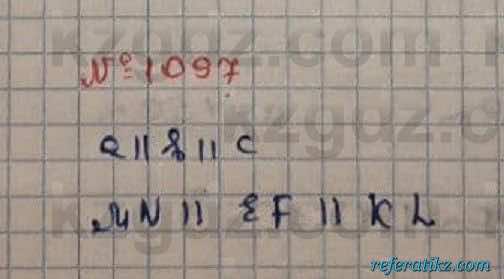 №1097
a || b || c
MN || EF || KL
kzgdz.com
referatikz.com